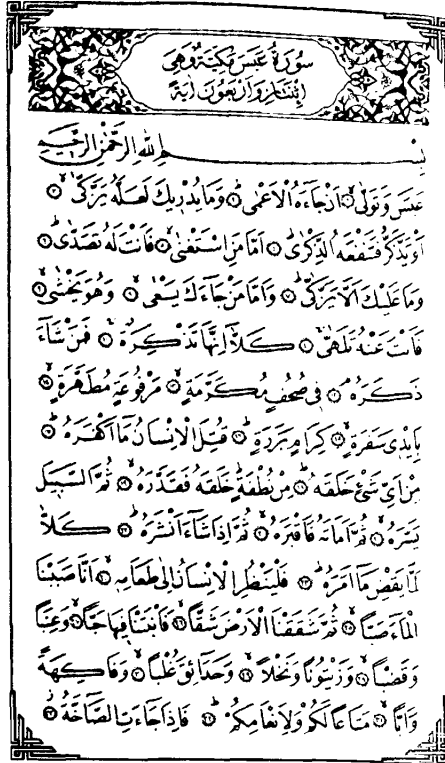 سُورَةُ عَبَسَ مَكِّيَّةٌ وَهِيَ
اِثْنَتَانِ وَاَرْبَعُونَ اٰيَةً
بِسْمِ اللّٰهِ الرَّحْمٰنِ الرَّحٖيمِ
عَبَسَ وَتَوَلّٰىۙ ﴿١﴾ اَنْ جَٓاءَهُ الْاَعْمٰىۜ ﴿٢﴾ وَمَا يُدْرٖيكَ لَعَلَّهُ يَزَّكّٰىۙ ﴿٣﴾
اَوْ يَذَّكَّرُ فَتَنْفَعَهُ الذِّكْرٰىۜ ﴿٤﴾ اَمَّا مَنِ اسْتَغْنٰىۙ ﴿٥﴾ فَاَنْتَ لَهُ تَصَدّٰىۜ ﴿٦﴾
وَمَا عَلَيْكَ اَلَّا يَزَّكّٰىۜ ﴿٧﴾ وَاَمَّا مَنْ جَٓاءَكَ يَسْعٰىۙ ﴿٨﴾ وَهُوَ يَخْشٰىۙ ﴿٩﴾
فَاَنْتَ عَنْهُ تَلَهّٰىۚ ﴿١٠﴾ كَلَّٓا اِنَّهَا تَذْكِرَةٌۚ ﴿١١﴾ فَمَنْ شَٓاءَ
ذَكَرَهُۢ ﴿١٢﴾ فٖي صُحُفٍ مُكَرَّمَةٍۙ ﴿١٣﴾ مَرْفُوعَةٍ مُطَهَّرَةٍۙ ﴿١٤﴾
بِاَيْدٖي سَفَرَةٍۙ ﴿١٥﴾ كِرَامٍ بَرَرَةٍۜ ﴿١٦﴾ قُتِلَ الْاِنْسَانُ مَٓا اَكْفَرَهُۜ ﴿١٧﴾
مِنْ اَيِّ شَيْءٍ خَلَقَهُۜ ﴿١٨﴾ مِنْ نُطْفَةٍۜ خَلَقَهُ فَقَدَّرَهُۙ ﴿١٩﴾ ثُمَّ السَّبٖيلَ
يَسَّرَهُۙ ﴿٢٠﴾ ثُمَّ اَمَاتَهُ فَاَقْبَرَهُۙ ﴿٢١﴾ ثُمَّ اِذَا شَٓاءَ اَنْشَرَهُۜ ﴿٢٢﴾ كَلَّا
لَمَّا يَقْضِ مَٓا اَمَرَهُۜ ﴿٢٣﴾ فَلْيَنْظُرِ الْاِنْسَانُ اِلٰى طَعَامِهٖۙ ﴿٢٤﴾ اَنَّا صَبَبْنَا
الْمَٓاءَ صَبًّاۙ ﴿٢٥﴾ ثُمَّ شَقَقْنَا الْاَرْضَ شَقًّاۙ ﴿٢٦﴾ فَاَنْبَتْنَا فٖيهَا حَبًّاۙ ﴿٢٧﴾ وَعِنَبًا
وَقَضْبًاۙ ﴿٢٨﴾ وَزَيْتُونًا وَنَخْلًاۙ ﴿٢٩﴾ وَحَدَٓائِقَ غُلْبًاۙ ﴿٣٠﴾ وَفَاكِهَةً
وَاَبًّاۙ ﴿٣١﴾ مَتَاعًا لَكُمْ وَلِاَنْعَامِكُمْۜ ﴿٣٢﴾ فَاِذَا جَٓاءَتِ الصَّٓاخَّةُۘ ﴿٣٣﴾